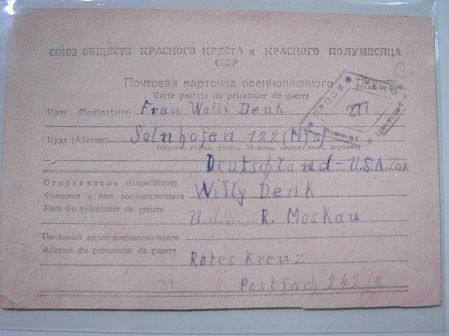 СОЮЗ ОБЩЕСТВ КРАСНОГО КРЕСТА и КРАСНОГО ПОЛУМЕСЯЦА
СССР
Почтовая карточка военнопленного
Carte postale du prisonnier de guerre
Кому (Destinataire) Frau Walli Denk
277
Куда (Adresse) Solnhofen 122 (Mfr)
Deutschland - U.S.A.
Отправитель (Expéditeur) Willy Denk
Фамилия и имя военнопленного
Nom du prisonnier de guerre R. Moskau
Почтовый адрес военнопленного
Adresse du prisonnier de guerre Rotes Kreuz
Postfach 242/